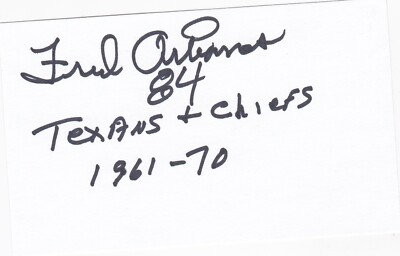 Fred Arbanas
84
TEXANS + ChIEFS
1961-70